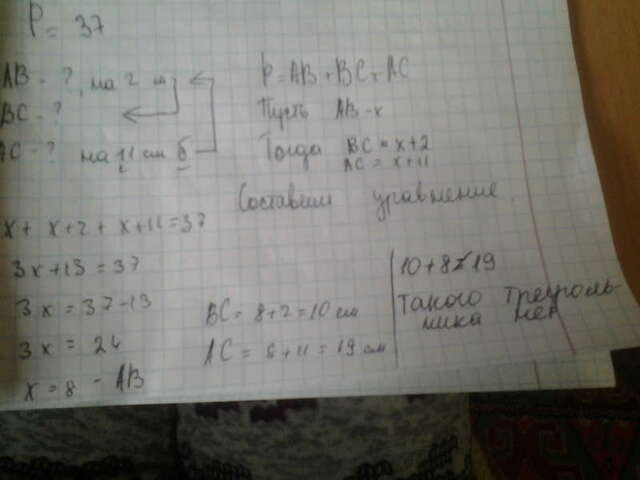 P = 37
AB - ?, на 2 м
BC - ?
AC - ? на 11 см б
P = AB + BC + AC
Пусть AB - x
Тогда BC = x+2
AC = x+11
Составим уравнение
x + x+2 + x+11 = 37
3x+13 = 37
3x = 37-13
3x = 24
x = 8 - AB
BC = 8+2 = 10 см
AC = 8+11 = 19 см
10+8≠19
Такого треуголь-
ника нет